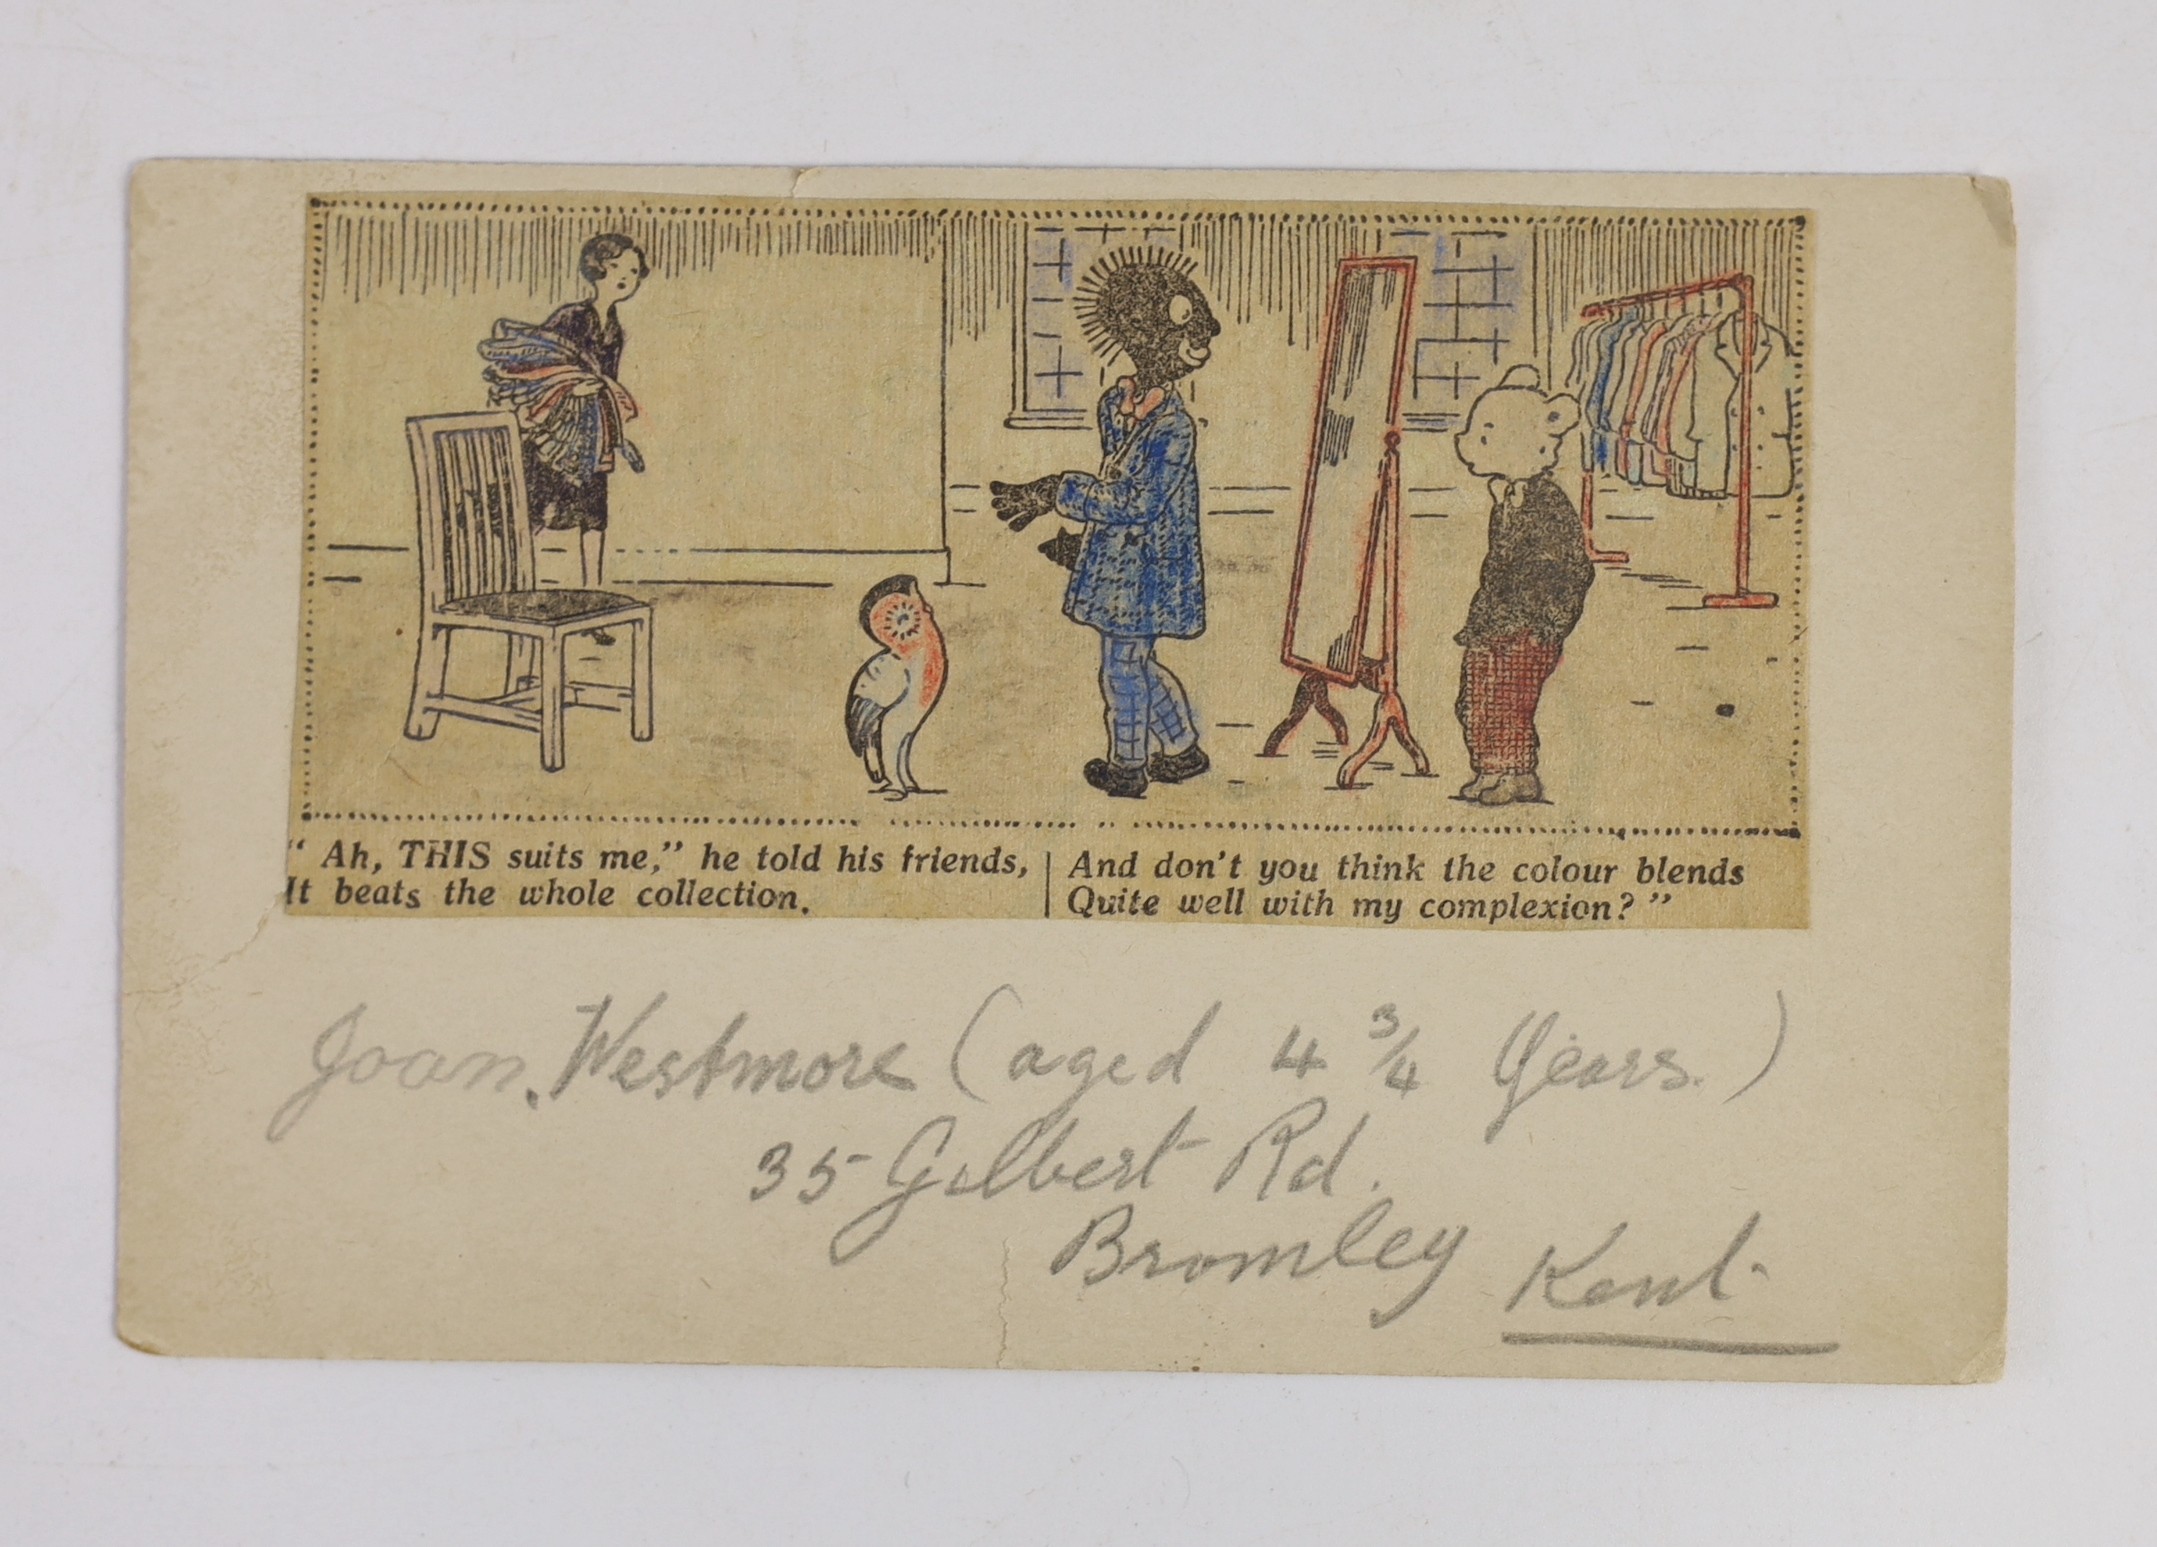 " Ah, THIS suits me," he told his friends,
It beats the whole collection.
And don't you think the colour blends
Quite well with my complexion? "
Joan. Westmore (aged 4 3/4 Years.)
35 Gilbert Rd.
Bromley Kent.